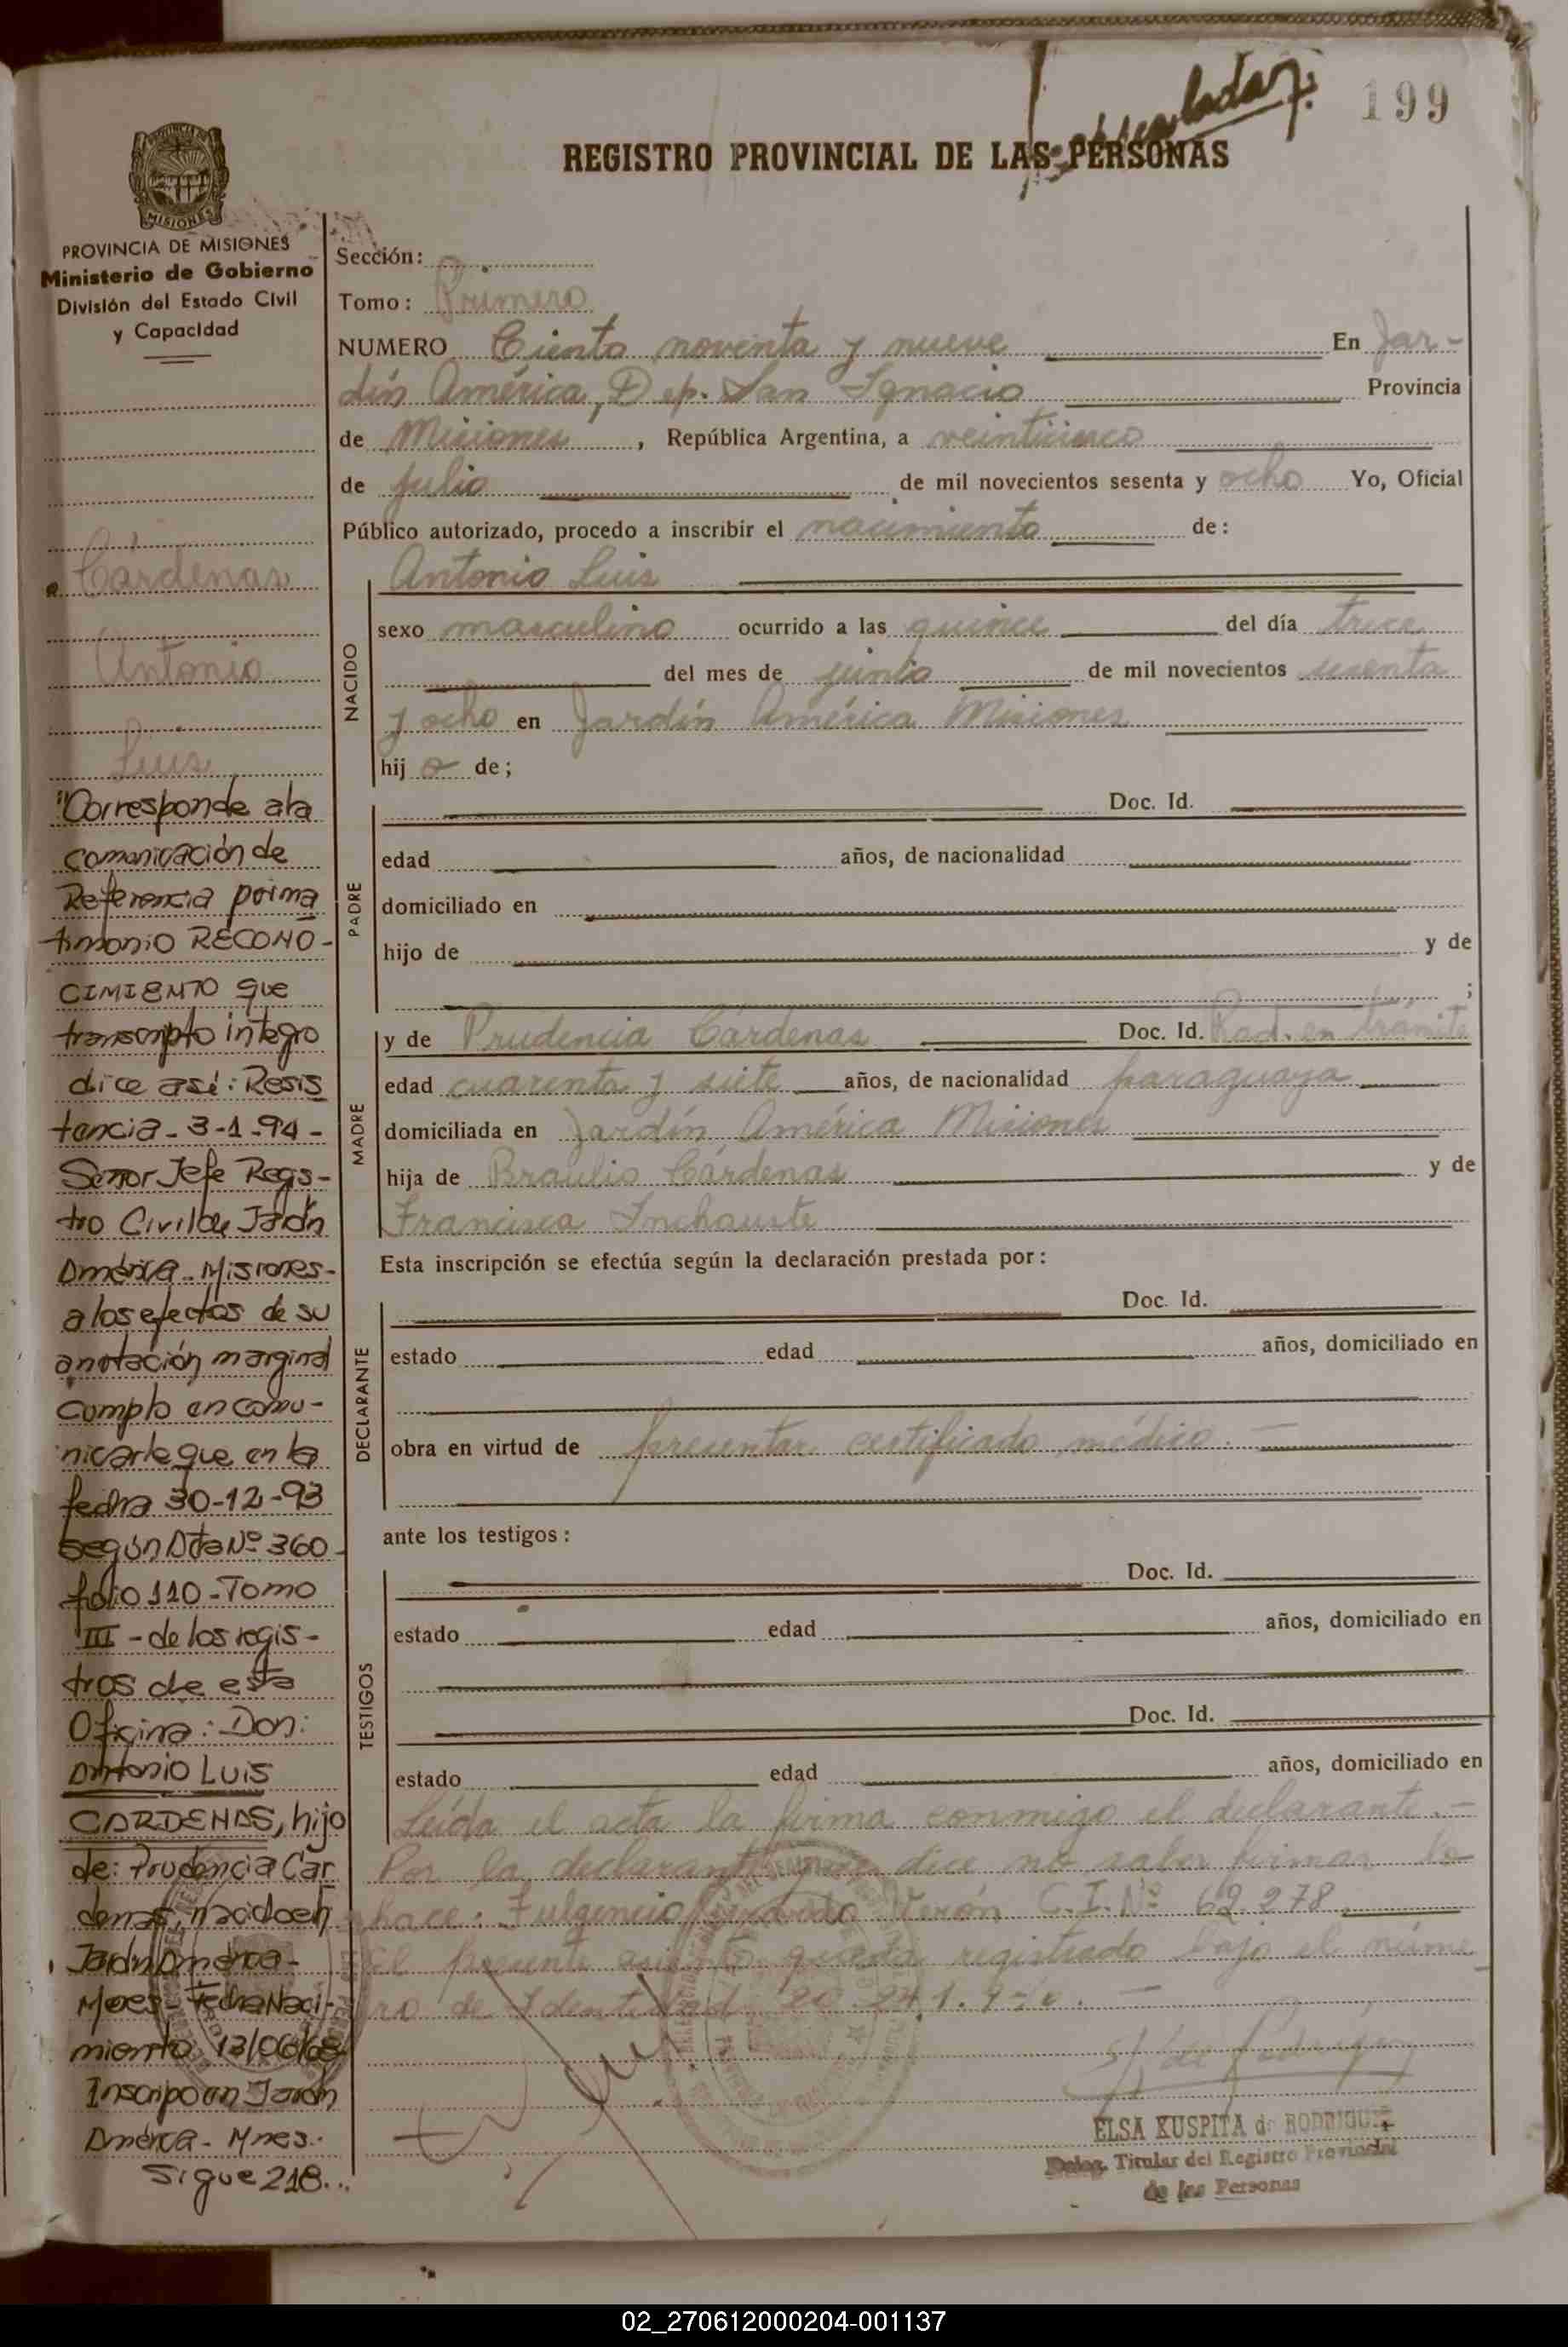 199
REGISTRO PROVINCIAL DE LAS PERSONAS
PROVINCIA DE MISIONES
Ministerio de Gobierno
División del Estado Civil
y Capacidad
Cárdenas
Antonio
Luis
"Corresponde ala
comunicación de
Referencia por ma
trimonio RECONO-
CIMIENTO que
transcripto integro
dice así: Resis
tencia - 3-1-94-
Señor Jefe Regis-
tro Civil de Jardn
América - Misiones-
a los efectos de su
anotación marginal
cumplo en comu-
nicarle que en la
fecha 30-12-93
según Acta Nº 360-
folio 110 - Tomo
III - de los regis-
tros de esta
Oficina: Don:
Antonio LUIS
CARDENAS, hijo
de: Prudencia Car
denas, nacido en
Jardn América-
Mnes - Fecha Naci-
miento 13/06/68
Inscripo en Jardn
América - Mnes.
Sigue 218...
Sección:
Tomo: Primero
NUMERO Ciento noventa y nueve En Jar-
dín América, Dep. San Ignacio Provincia
de Misiones, República Argentina, a veinticinco
de julio de mil novecientos sesenta y ocho Yo, Oficial
Público autorizado, procedo a inscribir el nacimiento de:
Antonio Luis
NACIDO
sexo masculino ocurrido a las quince del día trece
del mes de junio de mil novecientos sesenta
y ocho en Jardín América Misiones
hijo de;
PADRE
Doc. Id.
edad años, de nacionalidad
domiciliado en
hijo de y de
;
MADRE
y de Prudencia Cárdenas Doc. Id. Rad. en trámite
edad cuarenta y siete años, de nacionalidad paraguaya
domiciliada en Jardín América Misiones
hija de Braulio Cárdenas y de
Francisca Inchauste
Esta inscripción se efectúa según la declaración prestada por:
DECLARANTE
Doc. Id.
estado edad años, domiciliado en
obra en virtud de presentar certificado médico.-
ante los testigos:
TESTIGOS
Doc. Id.
estado edad años, domiciliado en
Doc. Id.
estado edad años, domiciliado en
Leída el acta la firma conmigo el declarante.-
Por la declarante que dice no saber firmar lo
hace: Fulgencio Verón C.I. Nº 62.278
El presente asiento queda registrado bajo el núme
ro de Identidad
ELSA KUSPITA de RODRIGUEZ
Deleg. Titular del Registro Provincial
de las Personas
02_270612000204-001137